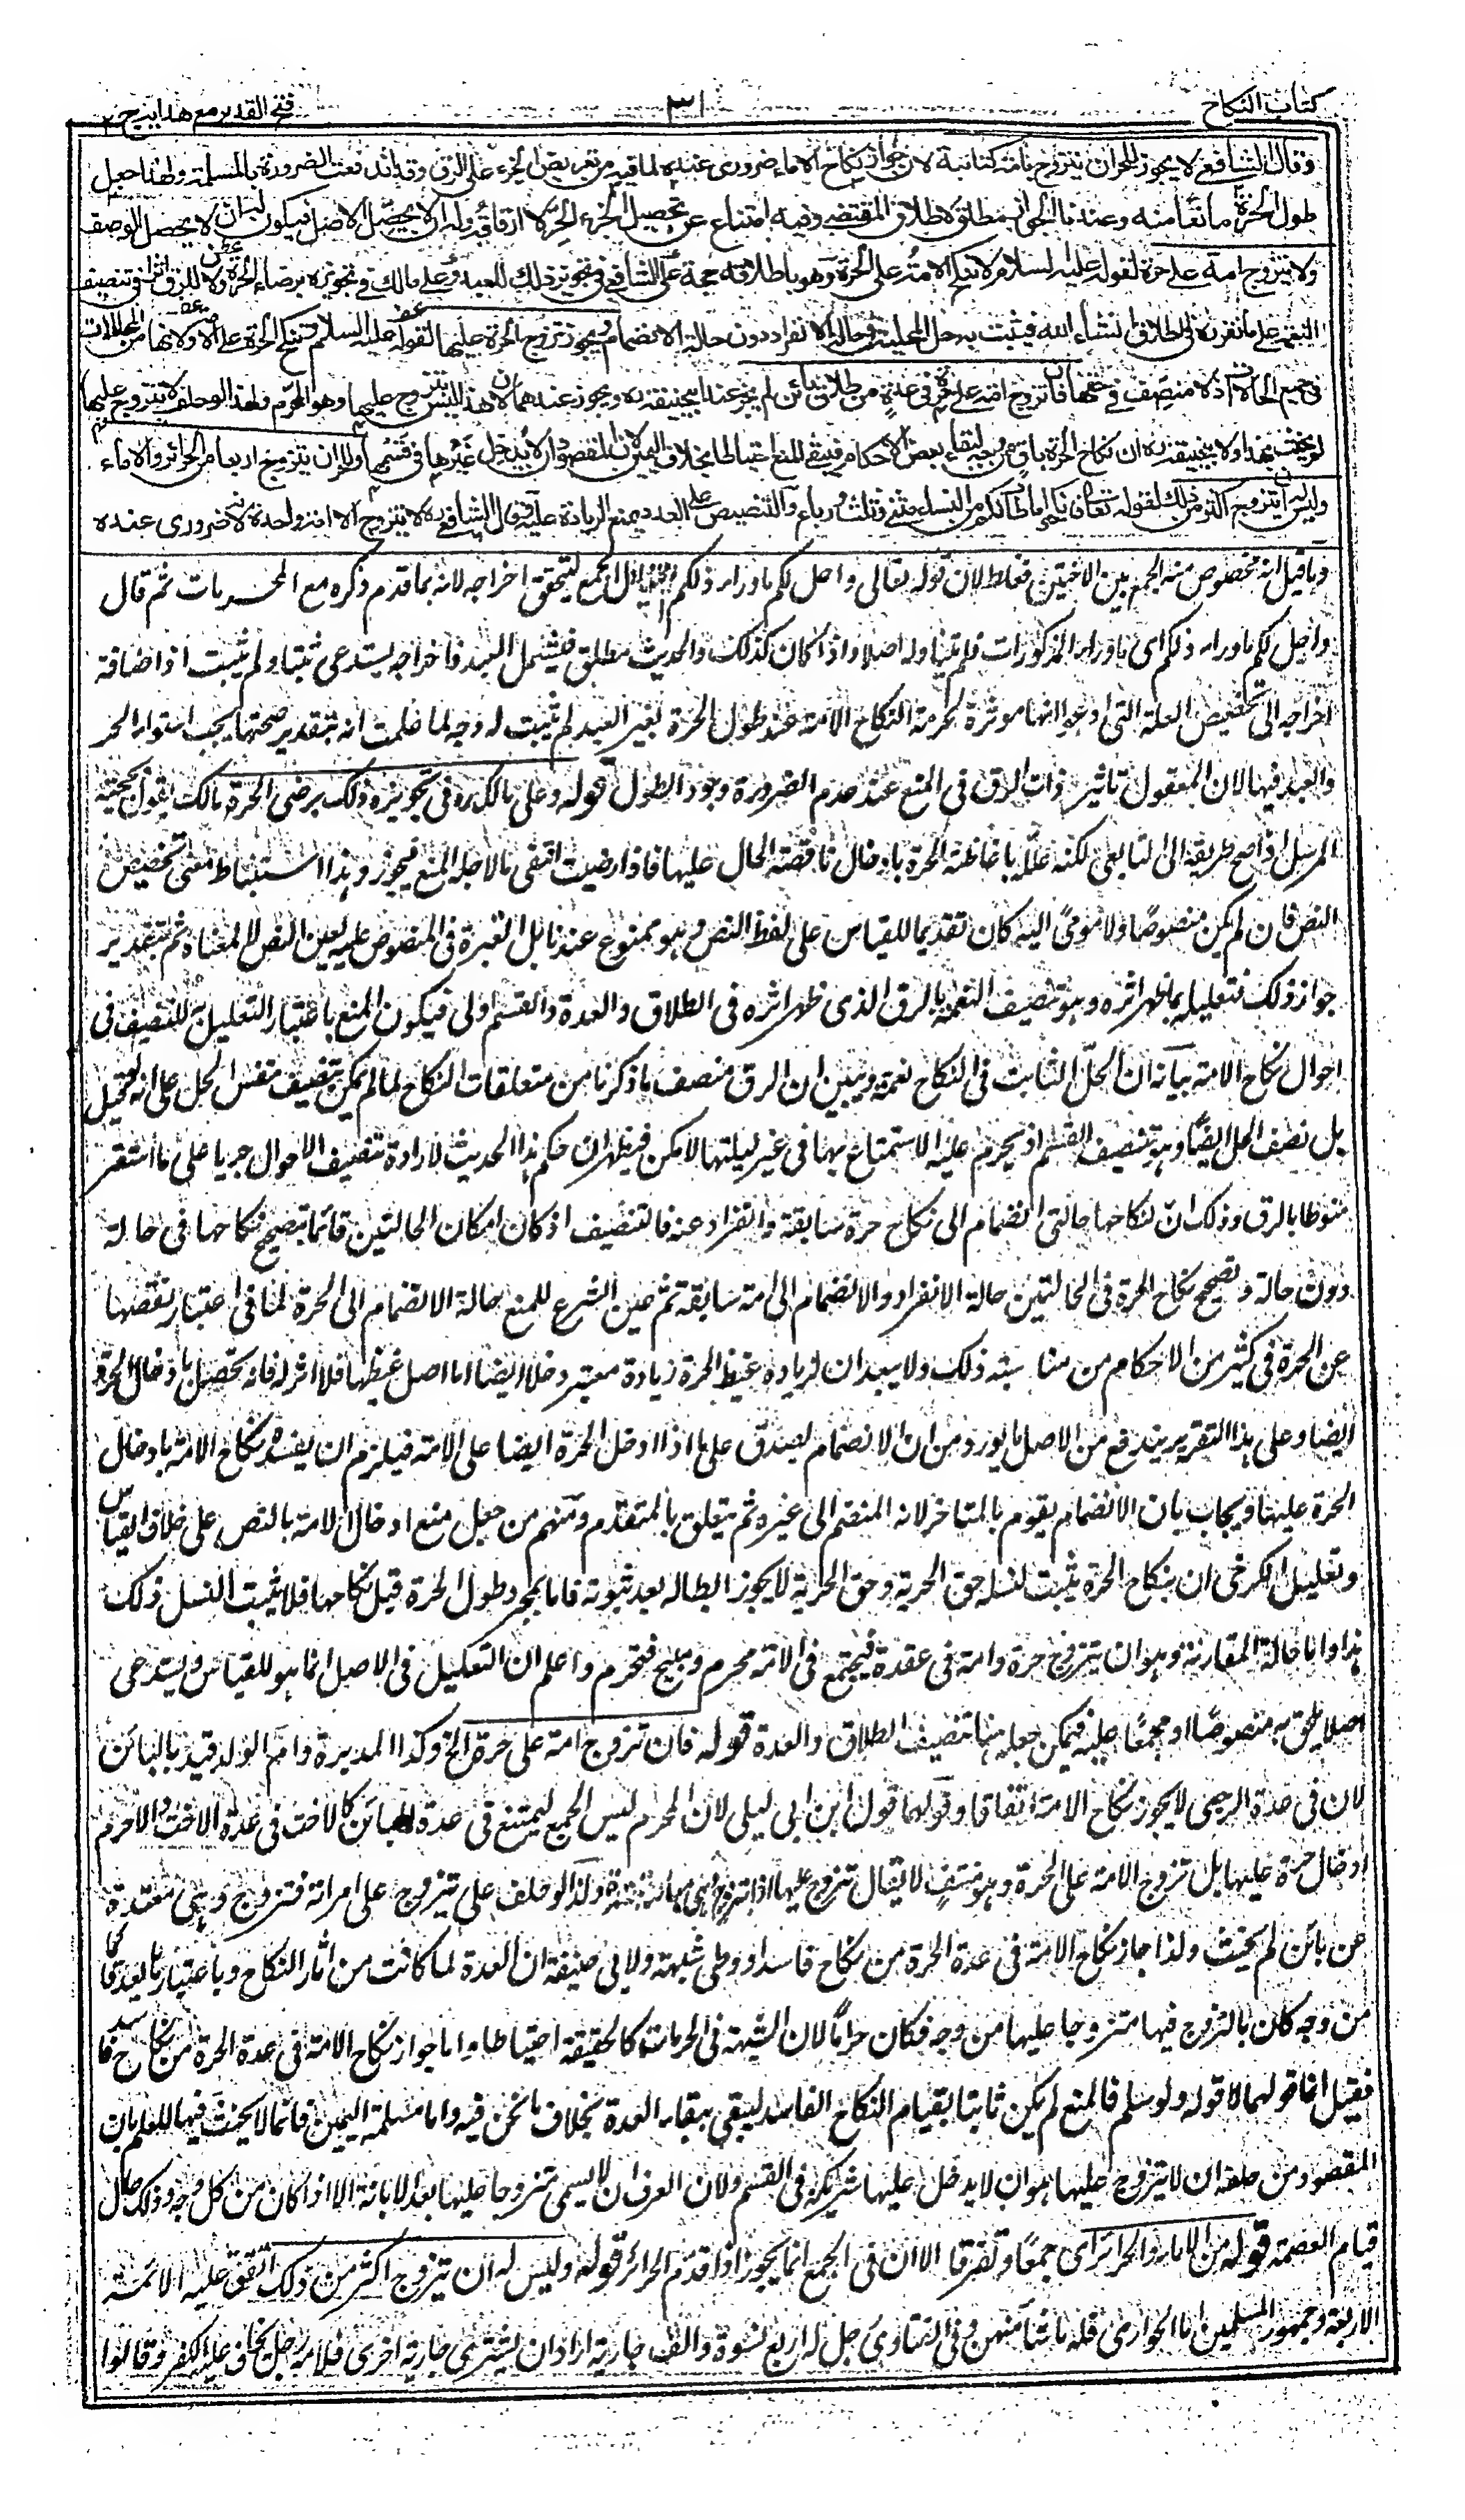 كتاب النكاح ٣١ فتح القدير مع هدايه ج ٢
وقال الشافعي لا يجوز للحر ان يتزوج بامة كتابية لان جواز نكاح الاماء ضروري عنده لما فيه من تعريض الجزء على الرق وقد اندفعت الضرورة بالمسلمة ولهذا جعل
طول الحرة مانعا منه وعندنا الجواز مطلق لاطلاق المقتضى وفيه امتناع عن تحصيل الجزء الحر لا ارقاقه وله ان لا يحصل الاصل فيكون له ان لا يحصل الوصف
ولا يتزوج امة على حرة لقوله عليه السلام لا تنكح الامة على الحرة وهو باطلاقه حجة على الشافعي في تجويزه ذلك للعبد وعلى مالك في تجويزه برضاء الحرة ولان للرق اثرا في تنصيف
النعمة على ما نقرره في الطلاق ان شاء الله فيثبت به حل المحلية في حالة الانفراد دون حالة الانضمام ويجوز تزوج الحرة عليها لقوله عليه السلام وتنكح الحرة على الامة ولانها من المحللات
في جميع الحالات اذ لا منصف في حقها فان تزوج امة على حرة في عدة من طلاق بائن لم يجز عند ابي حنيفة ره ويجوز عندهما لان هذا ليس بتزوج عليها وهو المحرم ولهذا لو حلف لا يتزوج عليها
لم يحنث بهذا ولابي حنيفة ره ان نكاح الحرة باق من وجه لبقاء بعض الاحكام فيبقى المنع احتياطا بخلاف اليمين لان المقصود ان لا يدخل غيرها في قسمها وللحر ان يتزوج اربعا من الحرائر والاماء
وليس له ان يتزوج اكثر من ذلك لقوله تعالى فانكحوا ما طاب لكم من النساء مثنى وثلث ورباع والتنصيص على العدد يمنع الزيادة عليه وقال الشافعي ره لا يتزوج الا امة واحدة لانه ضروري عنده
وما قيل انه مخصوص منه الجمع بين الاختين فغلط لان قوله تعالى واحل لكم ما وراء ذلكم لم يتناول الجمع ليتحقق اخراجه لانه بما قدم ذكره مع المحرمات ثم قال
واحل لكم ما وراء ذلكم اى ما وراء المذكورات فلم يتناوله اصلا واذا كان كذلك والحديث مطلق فيشمل العبد فاخراجه يستدعى ثبتا ولم يثبت اذ اضافة
اخراجه الى تخصيص العلة التى ادعوا انها موثرة لحرمة النكاح الامة عند طول الحرة لغير العبد لم يثبت له وجه لما علمت انه بتقدير صحتها يجب استواء الحر
والعبد فيها لان المعقول تاثير ذات الرق فى المنع عند عدم الضرورة وجود الطول قوله وعلى مالك ره فى تجويزه ذلك برضى الحرة مالك يقول بحجية
المرسل اذا صح طريقه الى التابعى لكنه علله باغاظة الحرة بادخال ناقصة الحال عليها فاذا رضيت انتفى ما لاجله المنع فيجوز وهذا استنباط معنى تخصيص
النص فان لم يكن منصوصا ولا مومى اليه كان تقديما للقياس على لفظ النص وهو ممنوع عندنا بل العبرة فى المنصوص عليه لعين النص لا لمعناه ثم بتقدير
جواز ذلك فتعليله بما ظهر اثره وهو تنصيف النعمة بالرق الذى ظهر اثره فى الطلاق والعدة والقسم اولى فيكون المنع باعتبار التعليل به للتنصيف فى
احوال نكاح الامة بيانه ان الحل الثابت فى النكاح نعمة وتبين ان الرق منصف ما ذكرنا من متعلقات النكاح لما لم يكن تنصيف نفس الحل على انه قيل
بل نصف الحل ايضا وهو بتنصيف القسم اذ يحرم عليه الاستمتاع بها فى غير ليلتها لامكن فيظهر ان حكم هذا الحديث لارادة تنصيف الاحوال جريا على ما استقر
منوطا بالرق وذلك ان لنكاحها حالتى انضمام الى نكاح حرة سابقة وانفراد عنه فالتنصيف اذ كان امكان الحالتين قائما بتصحيح نكاحها فى حالة
دون حالة وتصحيح نكاح الحرة فى الحالتين حالة الانفراد والانضمام الى امة سابقة ثم عين الشرع للمنع حالة الانضمام الى الحرة لما فى اعتبار نقصها
عن الحرة فى كثير من الاحكام من مناسبة ذلك ولا يبعد ان لزيادة غيظ الحرة زيادة معتبر دخلا ايضا اما اصل غيظها فلا اثر له فانه يحصل بادخال الحرة
ايضا وعلى هذا التقرير يندفع من الاصل ما يورد من ان الانضمام يصدق على ما اذا ادخل الحرة ايضا على الامة فيلزم ان يفسد نكاح الامة بادخال
الحرة عليها ويجاب بان الانضمام يقوم بالمتاخر لانه المنضم الى غيره ثم يتعلق بالمتقدم ومنهم من جعل منع ادخال الامة بالنص على خلاف القياس
وتعليل الكرخى ان بنكاح الحرة يثبت لنسله حق الحرية وحق الحرية لا يجوز ابطاله بعد ثبوته فاما بمجرد طول الحرة قبل نكاحها فلا يثبت النسل ذلك
هذا واما حالة المقارنة وهو ان يتزوج حرة وامة فى عقدة فيجتمع فى الامة محرم ومبيح فتحرم واعلم ان التعليل فى الاصل انما هو للقياس ويستدعى
اصلا يلحق به منصوصا او مجمعا عليه فيمكن جعله هنا تنصيف الطلاق والعدة قوله فان تزوج امة على حرة الخ وكذا المدبرة وام الولد قيد بالبائن
لان فى عدة الرجعى لا يجوز نكاح الامة اتفاقا وقولهما قول ابن ابى ليلى لان المحرم ليس الجمع ليمتنع فى عدة البائن كالاخت فى عدة الاخت
ادخال حرة عليها بل تزوج الامة على الحرة وهو منتف لا يقال تزوج عليها اذا تزوج وهى مبانة ولذا لو حلف على تزوج على امراته فتزوج وهى معتدة
عن بائن لم يحنث ولذا جاز نكاح الامة فى عدة الحرة من نكاح فاسد او وطى شبهة ولابى حنيفة ان العدة لما كانت من اثار النكاح وباعتبارها يعد قائما
من وجه كان بالتزوج فيها متزوجا عليها من وجه فكان حراما لان الشبهة فى الحرمات كالحقيقة احتياطا واما جواز نكاح الامة فى عدة الحرة من نكاح فاسد
فقيل انما قولهما لا قوله ولو سلم فالمنع لم يكن ثابتا بقيام النكاح الفاسد ليبقى ببقاء العدة بخلاف ما نحن فيه واما مسئلة اليمين فانما لا يحنث فيها للعلم بان
المقصود من حلفه ان لا يتزوج عليها هو ان لا يدخل عليها شريكة فى القسم ولان العرف ان لا يسمى متزوجا عليها بعد الابانة الا اذا كان من كل وجه وذلك حال
قيام العصمة قوله من الاماء والحرائر اى جمعا وتفرقا الا ان فى الجمع انما يجوز اذا قدم الحرائر قوله وليس له ان يتزوج اكثر من ذلك اتفق عليه الائمة
الاربعة وجمهور المسلمين اما الجوارى فله ما شاء منهن وفى الفتاوى رجل له اربع نسوة والف جارية اراد ان يشترى جارية اخرى فلامه رجل يخاف عليه الكفر وقالوا